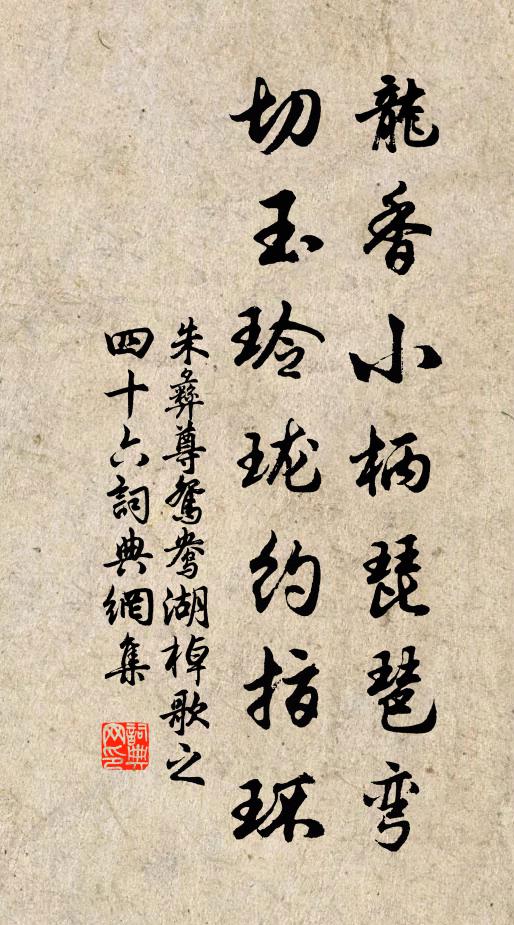 龍香小柄琵琶弯
切玉玲珑約指环
朱彝尊鴛鴦湖棹歌之
四十六詞典網集
詞典
网印